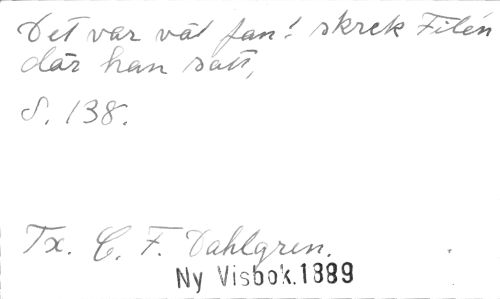 Det var väl fan! skrek Filén
där han satt,
S. 138.
Tx. C. F. Dahlgren.
Ny Visbok.1889